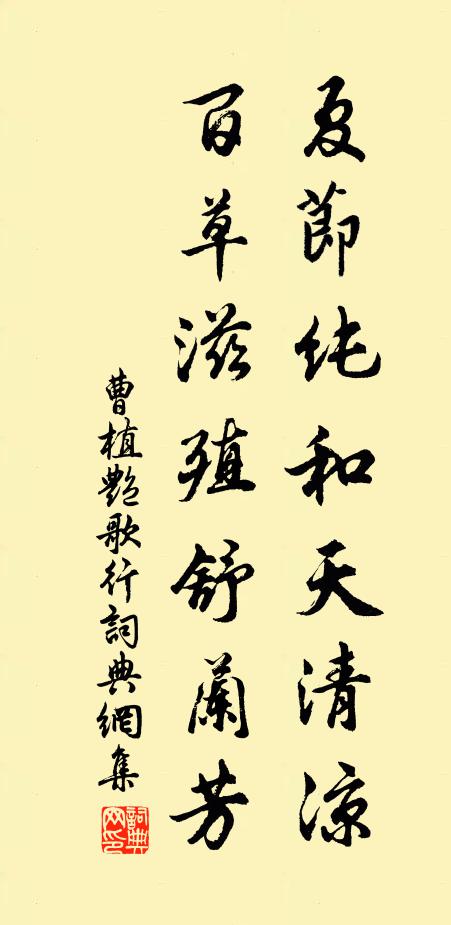 夏節纯和天清涼
百草滋殖舒蘭芳
曹植艷歌行詞典網集
詞典网印